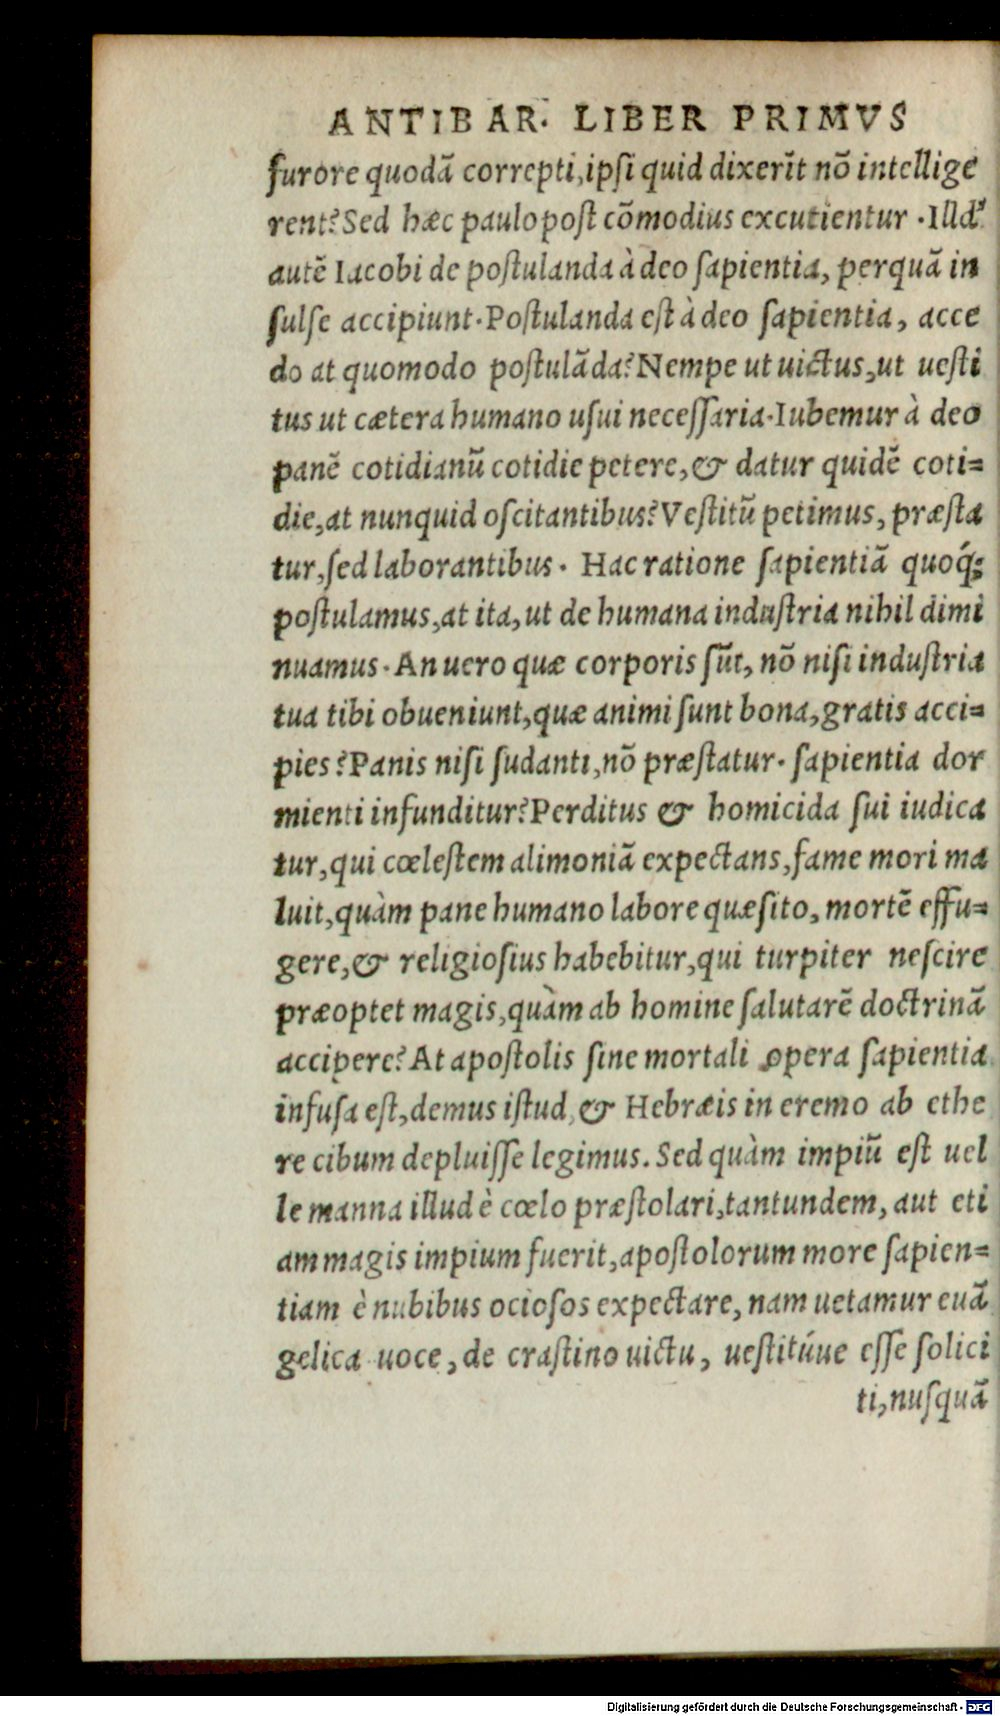 ANTIBAR. LIBER PRIMVS
furore quodã correpti,ipſi quid dixerĩt nõ intellige
rent?Sed hæc paulo poſt cõmodius excutientur .Illdꝰ
autẽ Iacobi de poſtulanda à deo ſapientia, perquã in
ſulſe accipiunt.Poſtulanda eſt à deo ſapientia, acce
do at quomodo poſtulãda?Nempe ut uictus,ut ueſti
tus ut cætera humano uſui neceſſaria.Iubemur à deo
panẽ cotidianũ cotidie petere,& datur quidẽ coti=
die,at nunquid oſcitantibus?Veſtitũ petimus, præſta
tur,ſed laborantibus. Hac ratione ſapientiã quoq́;
poſtulamus,at ita, ut de humana induſtria nihil dimi
nuamus.An uero quæ corporis ſũt, nõ niſi induſtria
tua tibi obueniunt,quæ animi ſunt bona,gratis acci=
pies?Panis niſi ſudanti,nõ præſtatur. ſapientia dor
mienti infunditur?Perditus & homicida ſui iudica
tur,qui cœleſtem alimoniã expectans,fame mori ma
luit,quàm pane humano labore quæſito, mortẽ effu=
gere,& religioſius habebitur,qui turpiter neſcire
præoptet magis,quàm ab homine ſalutarẽ doctrinã
accipere?At apoſtolis ſine mortali opera ſapientia
infuſa eſt,demus iſtud,& Hebræis in eremo ab ethe
re cibum depluiſſe legimus. Sed quàm impiũ eſt uel
le manna illud è cœlo præſtolari,tantundem, aut eti
am magis impium fuerit,apoſtolorum more ſapien=
tiam è nubibus ocioſos expectare, nam uetamur euã
gelica uoce, de craſtino uictu, ueſtitúue eſſe ſolici
ti,nuſquã
Digitalisierung gefördert durch die Deutsche Forschungsgemeinschaft - DFG